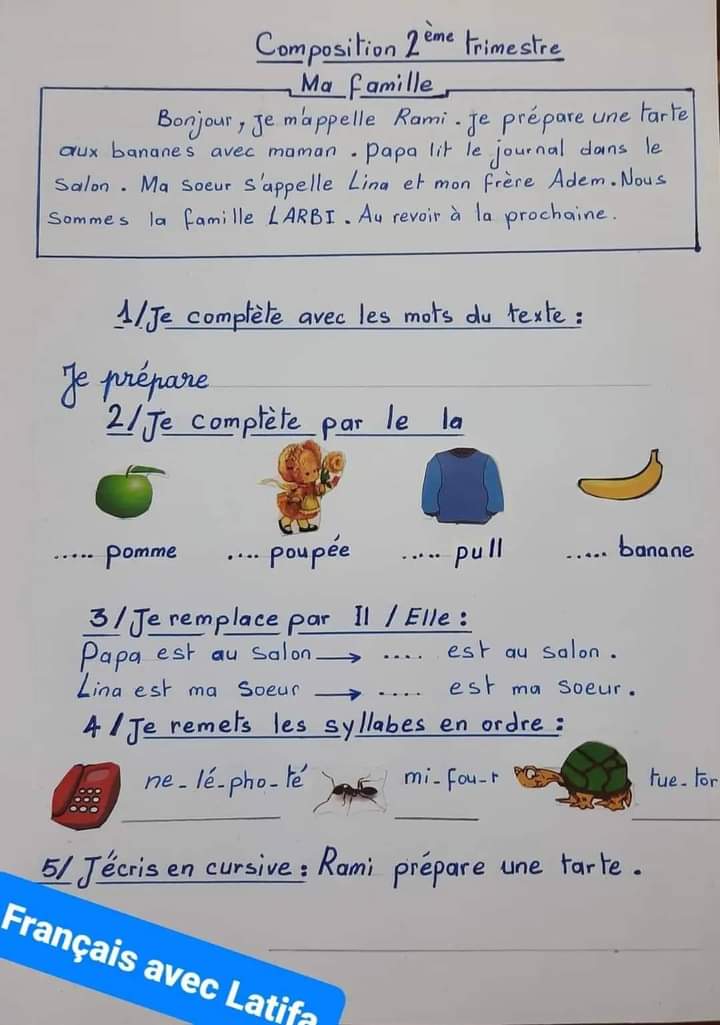 Composition 2ème trimestre
Ma famille
Bonjour, je m'appelle Rami. je prépare une tarte
aux bananes avec maman. papa lit le journal dans le
salon. Ma soeur s'appelle Lina et mon frère Adem. Nous
sommes la famille LARBI. Au revoir à la prochaine.
1/Je complète avec les mots du texte :
Je prépare
2/Je complète par le la
..... pomme .... poupée ..... pull ..... banane
3/Je remplace par Il / Elle :
Papa est au salon → .... est au salon.
Lina est ma soeur → .... est ma soeur.
4/Je remets les syllabes en ordre :
ne - lé - pho - té mi - fou - r tue - tor
5/ J'écris en cursive : Rami prépare une tarte.
Français avec Latifa